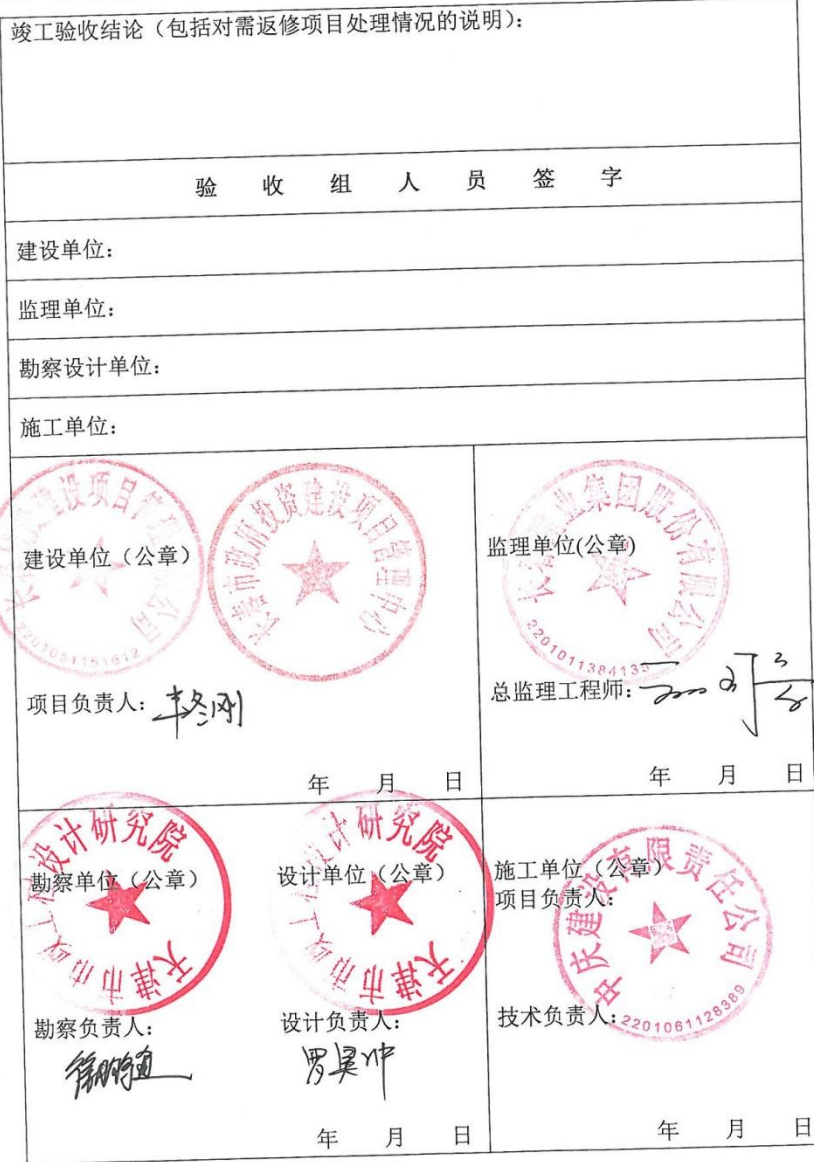 竣工验收结论（包括对需返修项目处理情况的说明）：
验 收 组 人 员 签 字
建设单位：
监理单位：
勘察设计单位：
施工单位：
建设单位（公章）
建设项目管理
公司
2201051151612
长春市政府投资建设项目管理中心
项目负责人：
年 月 日
监理单位(公章)
业集团股份有限公司
2201011384135
总监理工程师：
年 月 日
勘察单位（公章）
天津市市政工程设计研究院
勘察负责人：
设计单位（公章）
天津市市政工程设计研究院
设计负责人：
年 月 日
施工单位（公章）
项目负责人：
中庆建设有限责任公司
2201061128389
技术负责人：
年 月 日